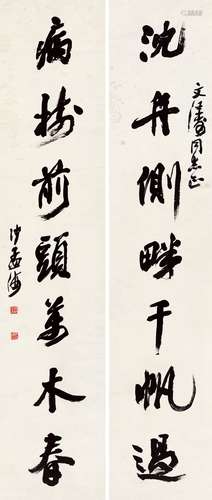 沈舟側畔千帆過
文濤同志正
病樹前頭萬木春
沙孟海